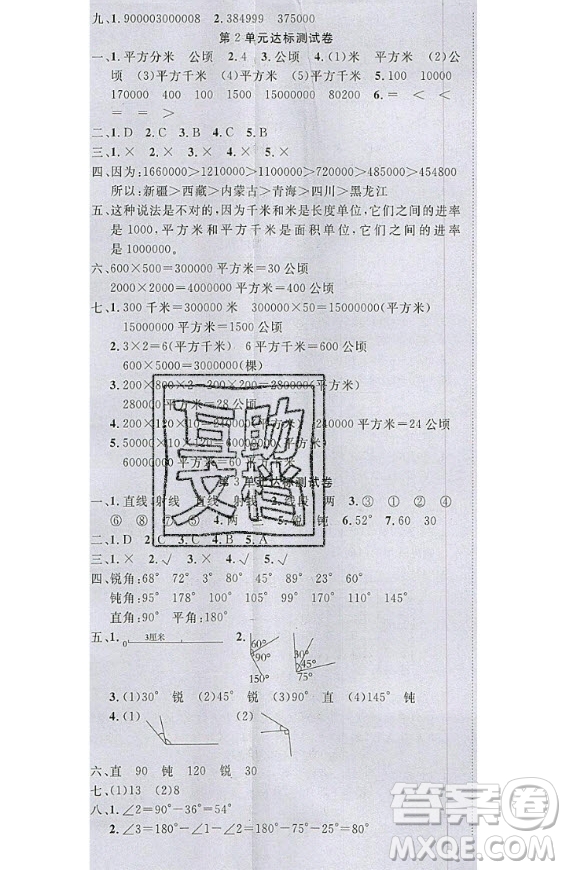 九、1. 900003000008 2. 384999 375000
第2单元达标测试卷
一、1. 平方分米 公顷 2. 4 3. 公顷 4. (1)米 平方米 (2)公
顷 (3)平方千米 (4)平方米 5. 100 10000
170000 400 100 1500 15000000 80200 6. = < <
= = >
二、1. D 2. C 3. C 4. C 5. B
三、1. × 2. × 3. × 4. × 5. ×
四、因为:1660000>1210000>1110000>720000>485000>454800
所以:新疆>西藏>内蒙古>青海>四川>黑龙江
五、这种说法是不对的,因为千米和米是长度单位,它们之间的进率
是1000,平方米和平方千米是面积单位,它们之间的进率
是1000000。
六、600×500=300000平方米=30公顷
2000×20000=40000000平方米=4000公顷
七、1. 300千米=300000米 300000×50=15000000(平方米)
15000000平方米=1500公顷
2. 3×2=6(平方千米) 6平方千米=600公顷
600×5000=3000000(棵)
3. 200×800×2-200×200=280000(平方米)
280000平方米=28公顷
4. 200×10×120=240000(平方米) 240000平方米=24公顷
50×10×120=60000(平方米) 60000平方米=6公顷
第3单元达标测试卷
一、1. 直线 射线 直线 射线 2. 线段 两 3. ③ ① ② ④
⑥ ⑧ ⑦ 4. 两 5. 锐 钝 6. 52° 7. 60 30
二、1. D 2. C 3. B 4. C 5. A
三、1. × 2. √ 3. × 4. √ 5. √
四、锐角:68° 72° 31° 80° 54° 89° 45° 83° 32°
钝角:98° 123° 101° 142° 100° 156°
直角:90° 平角:180°
五、1. 0 3厘米 2. 60° 90° 150° 30° 45° 75°
3. (1)30° 锐 (2)45° 锐 (3)90° 直 (4)145° 钝
4. (1) (2)
六、直 90 钝 120 锐 30
七、(1)13 (2)8
八、1. ∠2=90°-36°=54°
2. ∠3=180°-∠1-∠2=180°-75°-25°=80°
互助文档
答案卷
MXQE.COM